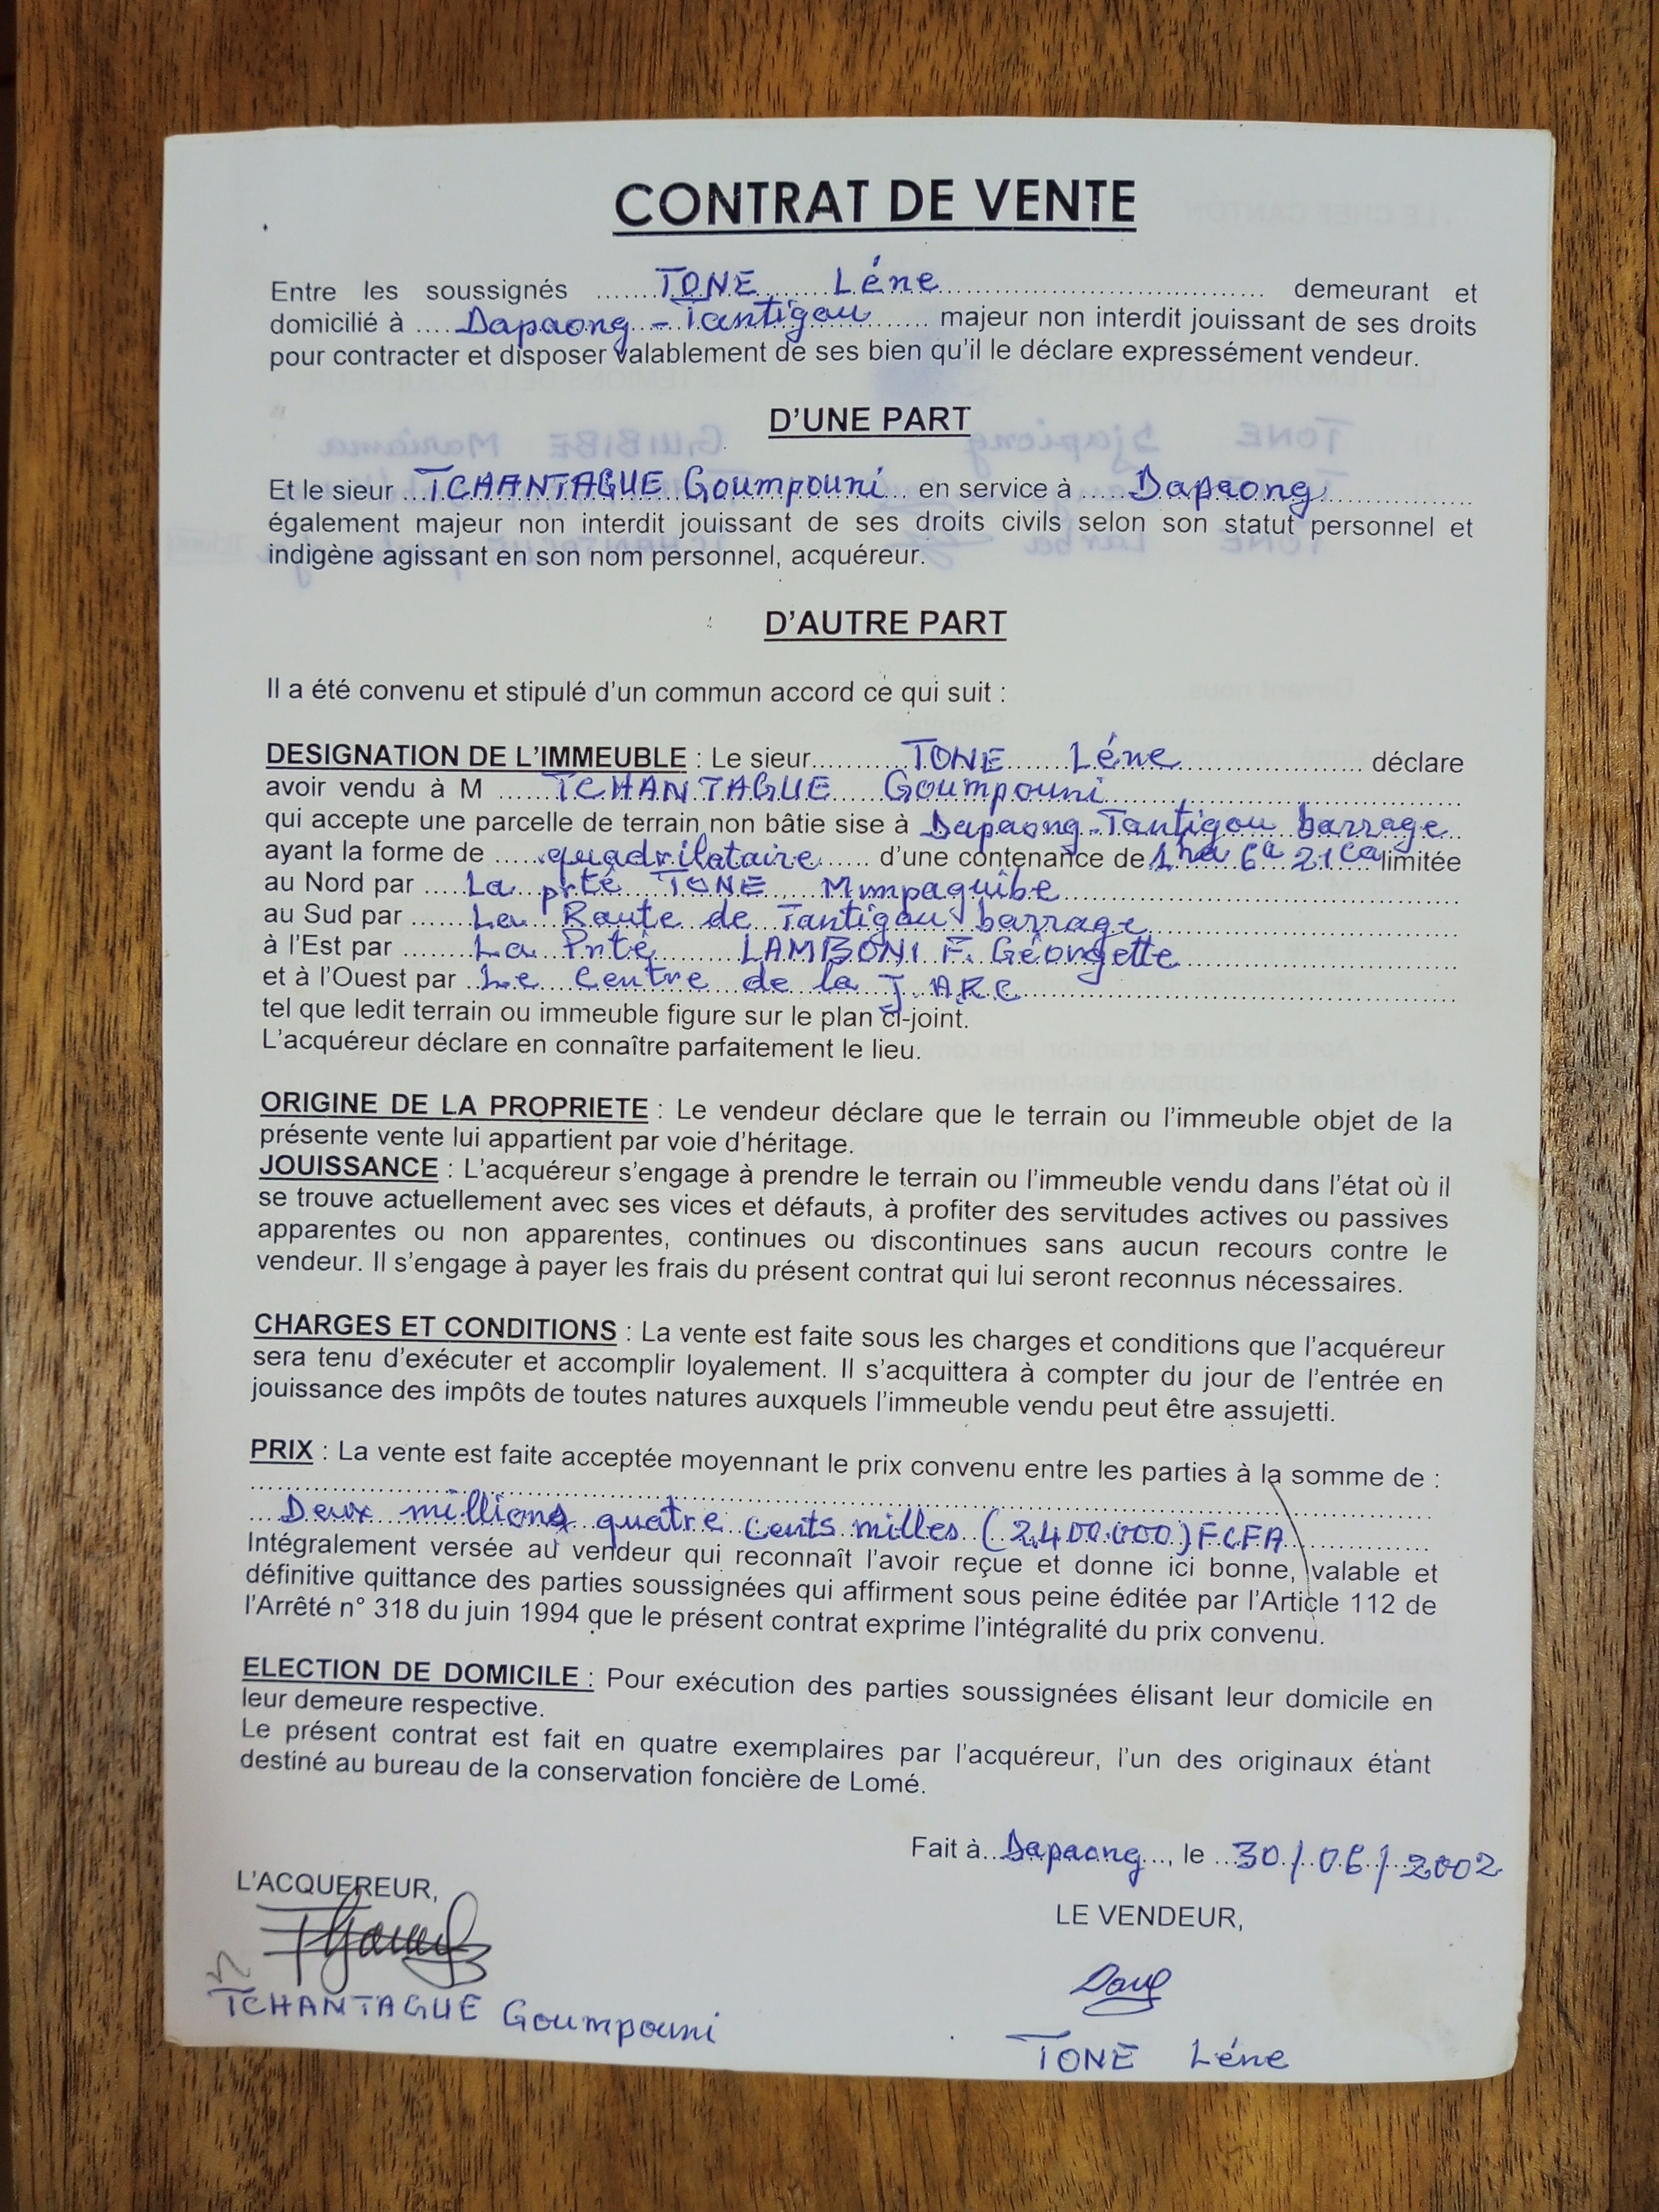 CONTRAT DE VENTE
Entre les soussignés ......TONE Léne.................................. demeurant et
domicilié à ....Dapaong - Tantigou....... majeur non interdit jouissant de ses droits
pour contracter et disposer valablement de ses bien qu'il le déclare expressément vendeur.
D'UNE PART
Et le sieur ...TCHANTAGUE Goumpouni... en service à .....Dapaong..................
également majeur non interdit jouissant de ses droits civils selon son statut personnel et
indigène agissant en son nom personnel, acquéreur.
D'AUTRE PART
Il a été convenu et stipulé d'un commun accord ce qui suit :
DESIGNATION DE L'IMMEUBLE : Le sieur..........TONE Léne...................... déclare
avoir vendu à M ......TCHANTAGUE Goumpouni..........................................
qui accepte une parcelle de terrain non bâtie sise à Dapaong-Tantigou barrage..
ayant la forme de .....quadrilataire...... d'une contenance de 1ha 6a 21ca limitée
au Nord par ....La prté TONE Mimpaguibe..................................................
au Sud par ......La Route de Tantigou barrage........................................
à l'Est par .......La Prté LAMBONI F. Géorgette...................................
et à l'Ouest par ..Le Centre de la J. ARC.....................................................
tel que ledit terrain ou immeuble figure sur le plan ci-joint.
L'acquéreur déclare en connaître parfaitement le lieu.
ORIGINE DE LA PROPRIETE : Le vendeur déclare que le terrain ou l'immeuble objet de la
présente vente lui appartient par voie d'héritage.
JOUISSANCE : L'acquéreur s'engage à prendre le terrain ou l'immeuble vendu dans l'état où il
se trouve actuellement avec ses vices et défauts, à profiter des servitudes actives ou passives
apparentes ou non apparentes, continues ou discontinues sans aucun recours contre le
vendeur. Il s'engage à payer les frais du présent contrat qui lui seront reconnus nécessaires.
CHARGES ET CONDITIONS : La vente est faite sous les charges et conditions que l'acquéreur
sera tenu d'exécuter et accomplir loyalement. Il s'acquittera à compter du jour de l'entrée en
jouissance des impôts de toutes natures auxquels l'immeuble vendu peut être assujetti.
PRIX : La vente est faite acceptée moyennant le prix convenu entre les parties à la somme de :
...Deux millions quatre cents milles (2.400.000) FCFA.................
Intégralement versée au vendeur qui reconnaît l'avoir reçue et donne ici bonne, valable et
définitive quittance des parties soussignées qui affirment sous peine éditée par l'Article 112 de
l'Arrêté n° 318 du juin 1994 que le présent contrat exprime l'intégralité du prix convenu.
ELECTION DE DOMICILE : Pour exécution des parties soussignées élisant leur domicile en
leur demeure respective.
Le présent contrat est fait en quatre exemplaires par l'acquéreur, l'un des originaux étant
destiné au bureau de la conservation foncière de Lomé.
Fait à..Dapaong..., le ..30/06/2002
L'ACQUEREUR,
LE VENDEUR,
TCHANTAGUE Goumpouni
TONE Léne